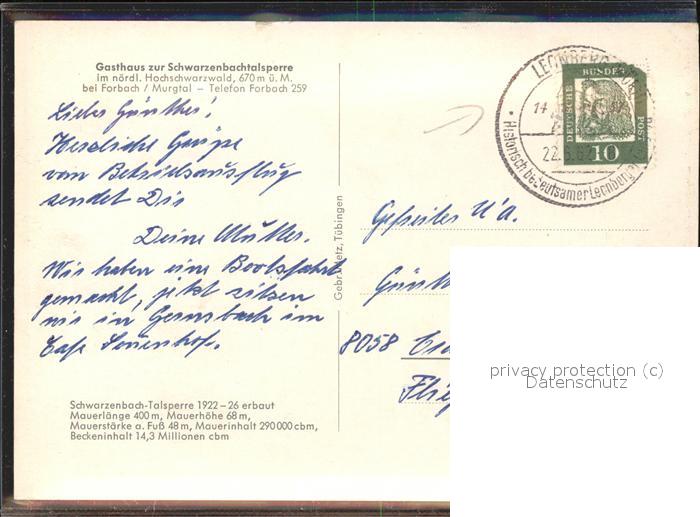 Gasthaus zur Schwarzenbachtalsperre
im nördl. Hochschwarzwald, 670 m ü. M.
bei Forbach / Murgtal – Telefon Forbach 259
Lieber Günther!
Herzliche Grüße
vom Betriebsausflug
sendet Dir
Deine Mutter.
Wir haben eine Bootsfahrt
gemacht, jetzt sitzen
wir in Gernsbach im
Cafe
Schwarzenbach-Talsperre 1922–26 erbaut
Mauerlänge 400 m, Mauerhöhe 68 m,
Mauerstärke a. Fuß 48 m, Mauerinhalt 290 000 cbm,
Beckeninhalt 14,3 Millionen cbm
Gebr. Metz, Tübingen
LEONBERG
14
22.
Historisch bedeutsamer Leonberg
DEUTSCHE BUNDESPOST
10
Gefreiter U.A.
Günth
8058
Flie
privacy protection (c)
Datenschutz